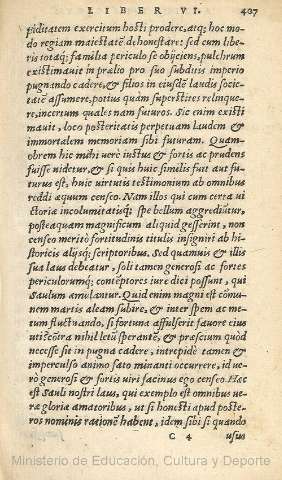 LIBER VI. 407
piditatem exercitum hosti prodere, atq; hoc mo-
do regiam maiestatē dehonestare: sed cum libe-
ris totaq; familia periculo se obijciens, pulchrum
existimauit in prælio pro suo subditis imperio
pugnando cadere, & filios in eiusdē laudis socie-
tatē assumere, potius quàm superstites relinque-
re, incertum quales nam futuros. Sic enim existi
mauit, loco posteritatis perpetuam laudem &
immortalem memoriam sibi futuram. Quam-
obrem hic mihi verè iustus & fortis ac prudens
fuisse uidetur, & si quis huic similis fuit aut fu-
turus est, huic uirtutis testimonium ab omnibus
reddi æquum censeo. Nam illos qui cum certa ui
ctoria incolumitatisq; spe bellum aggrediūtur,
posteaquam magnificum aliquid gesserint, non
censeo meritò fortitudinis titulis insigniri ab hi-
storicis alijsq; scriptoribus. Sed quamuis & illis
sua laus debeatur, soli tamen generosi ac fortes
periculorumq; contēptores iure dici possunt, qui
Saulum æmulantur. Quid enim magni est cōmu-
nem martis aleam subire, & inter spem ac me-
tum fluctuando, si fortuna affulserit fauore eius
uti? cæterùm nihil lætū sperantē, & præscium quòd
necesse sit in pugna cadere, intrepidè tamen &
imperculso animo fato minanti occurrere, id ue-
rò generosi & fortis uiri facinus ego censeo. Hæc
est Sauli nostri laus, qui exemplo est omnibus ue-
ræ gloriæ amatoribus, ut si honesti apud poste-
ros nominis rationē habent, idem sibi si quando
C 4 usus
Ministerio de Educación, Cultura y Deporte